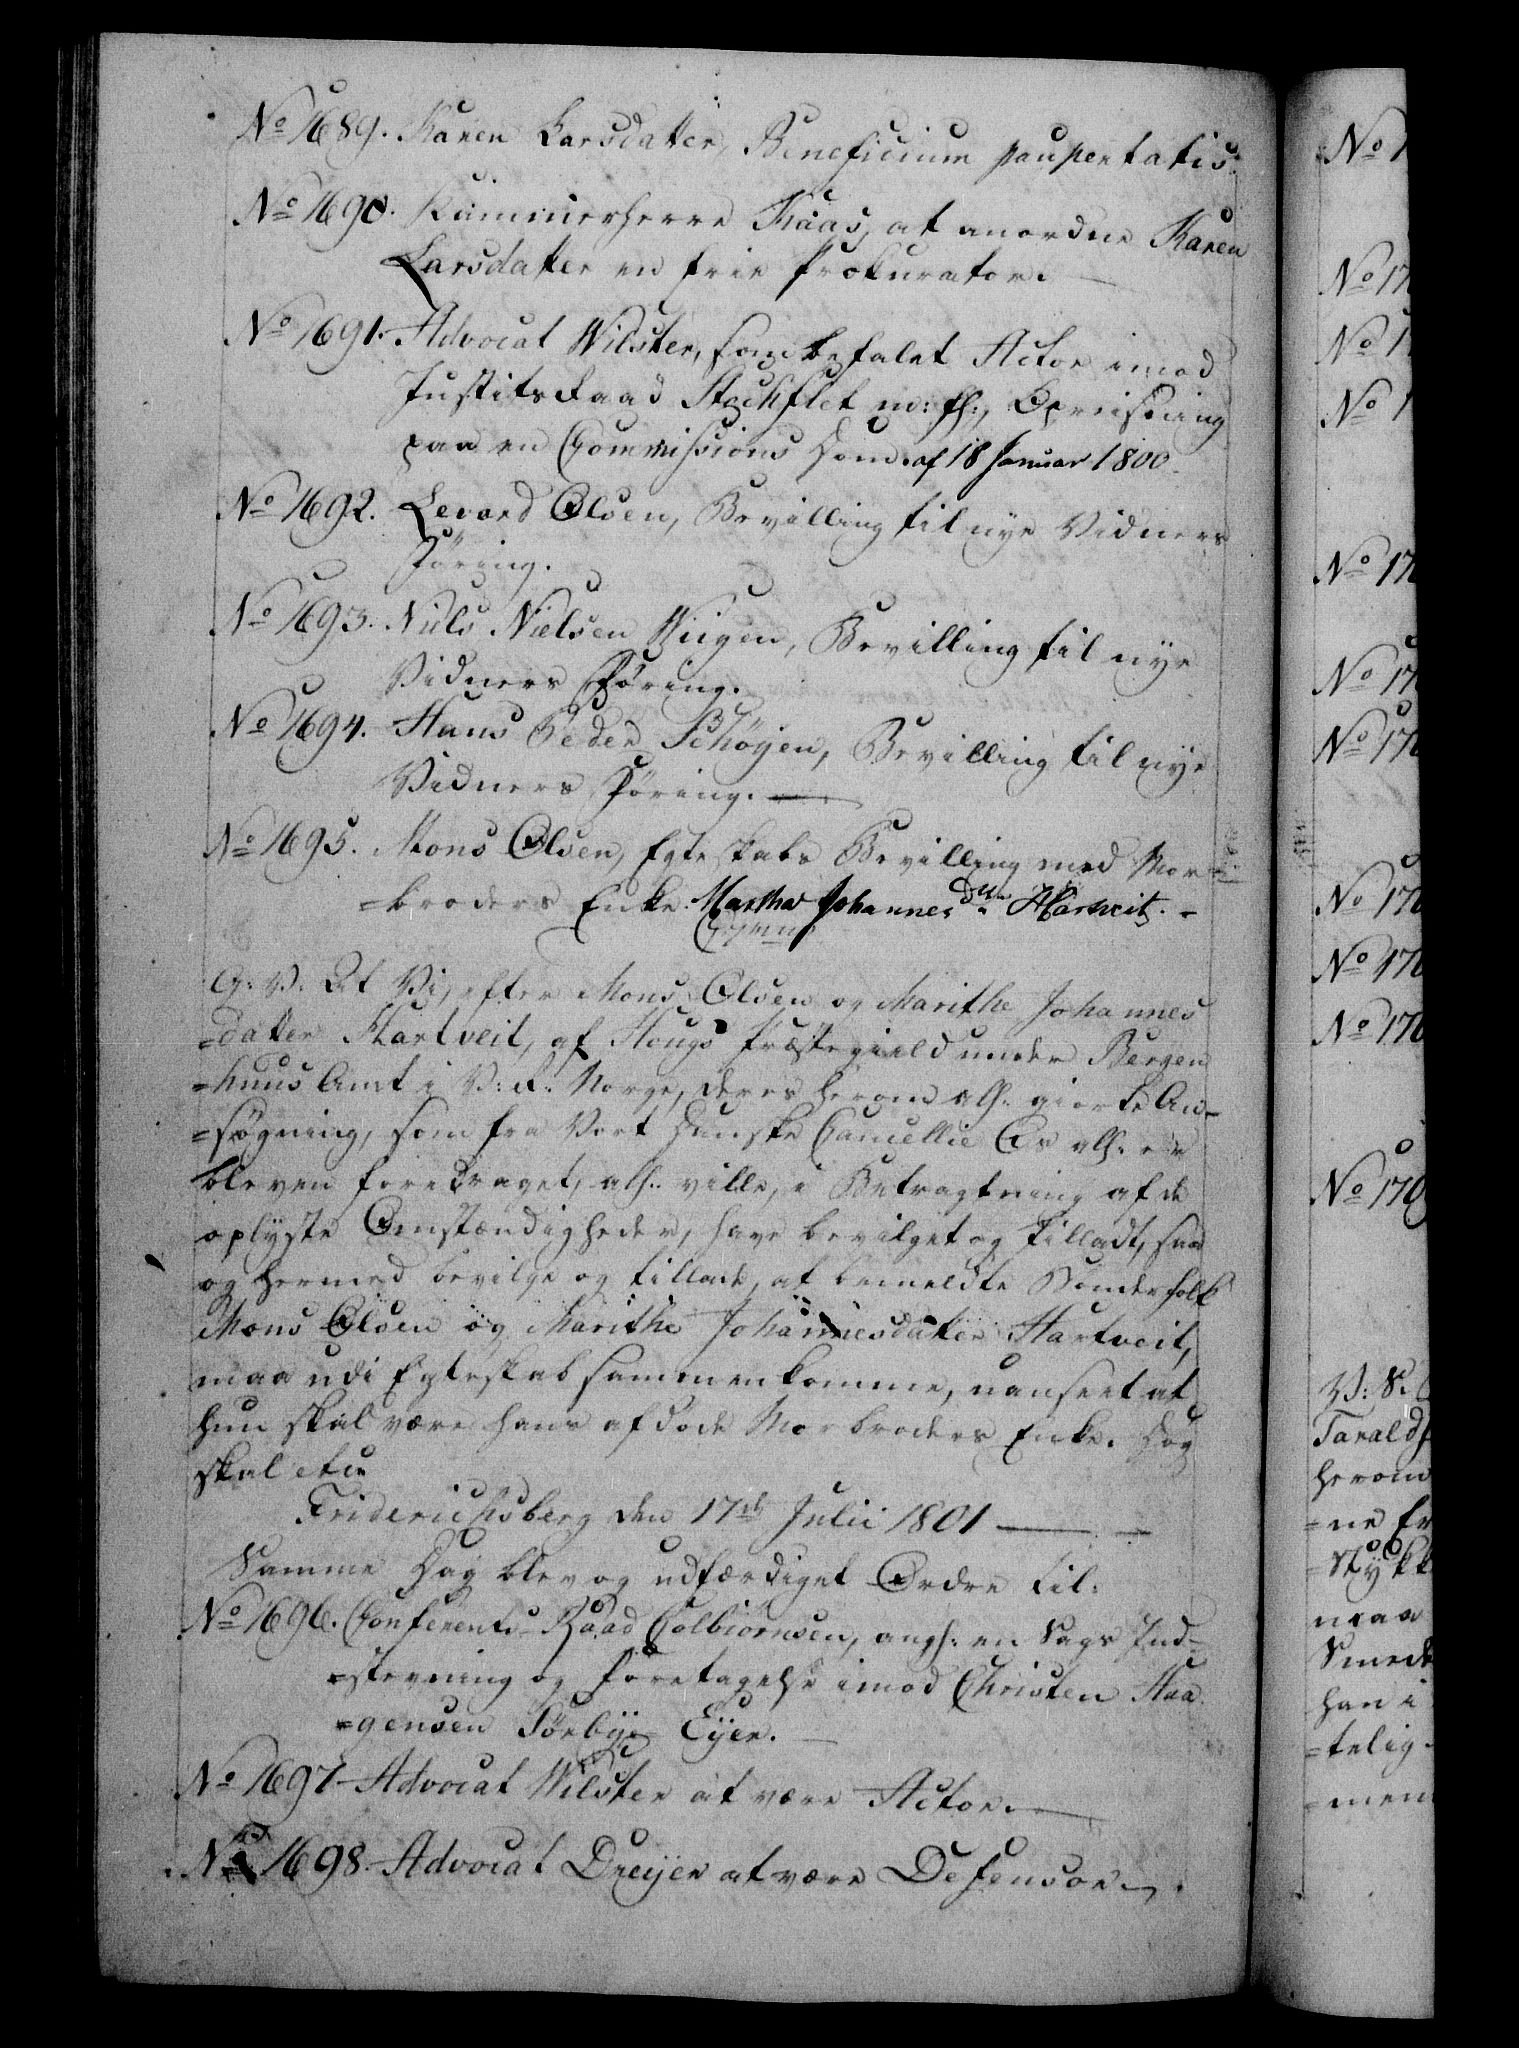 No 1689. Karen Larsdatter, Beneficium paupertatis.
No 1690. Kammerherre Kaas, at anordne Karen
Larsdatter en frie Prokurator.
No 1691. Advocat Wilster, som befalet Actor imod
Justitsraad Stockflet m: fl:, Opreisning
paa en Commissions Dom. af 18 Januar 1800.
No 1692. Levord Olsen, Bevilling til nye Vidners
Føring.
No 1693. Niels Nielsen Wiigen, Bevilling til nye
Vidners Føring.
No 1694. Hans Peder Schøyen, Bevilling til nye
Vidners Føring.
No 1695. Mons Olsen, Egteskabs Bevilling med Mor-
=broders Enke Martha Johannesdtr Hartveit.
G: V: At Vi, efter Mons Olsen og Marithe Johannes
=datter Hartveit, af Hougs Præstegield under Bergen
=huus Amt i V: R: Norge, deres herom all: giorte An-
=søgning, som fra Vort Danske Cancellie Os all: er
bleven foredraget, all: ville, i Betragtning af de
oplyste Omstændigheder, have bevilget og tilladt, saa
og hermed bevilge og tillade, at bemeldte Bondefolk
Mons Olsen og Marithe Johannesdatter Hartveit,
maa udi Egteskab sammenkomme, uanseet at
hun skal være hans afdøde Morbroders Enke. Dog
skal etc:
Friderichsberg den 17de Julii 1801
Samme Dag blev og udfærdiget Ordre til:
No 1696. Conferents-Raad Colbiørnsen, angl: en Sags Ind-
=stevning og Foretagelse imod Christen Haa
=gensen Sørbye Eyer.
No 1697 Advocat Wilster at være Actor.
No 1698. Advocat Dreyer at være Defensor.
No 1
No 17
No 1
No 1
No 170
No 170
No 170
No 170
No 170
No 170
No 170
V: S.
Tarald
herom
=ne Er
=Stykk
maa
Smede
han i
=telig
=men